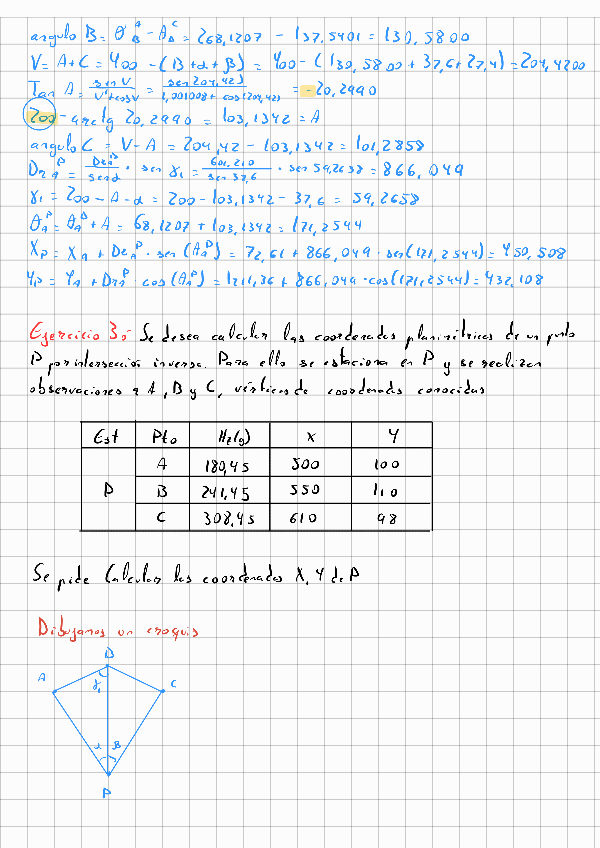 angulo B = θ_B^A - θ_B^C = 268,1207 - 137,5401 = 130,5800
V = A + C = 400 - (B + α + β) = 400 - (130,5800 + 37,6 + 27,4) = 204,4200
Tan A = sen V / V'+cos V = sen 204,42) / 1,001008 + cos(204,42) = -20,2990
200 - arctg 20,2990 = 103,1342 = A
angulo C = V - A = 204,42 - 103,1342 = 101,2858
Dr_A^P = Dr_A^B / sen α · sen γ₁ = 601,210 / sen 37,6 · sen 59,2658 = 866,049
γ₁ = 200 - A - α = 200 - 103,1342 - 37,6 = 59,2658
θ_A^P = θ_A^B + A = 68,1207 + 103,1342 = 171,2544
X_P = X_A + Dr_A^P · sen (A_A^P) = 72,61 + 866,049 · sen(171,2544) = 450,508
Y_P = Y_A + Dr_A^P · cos (A_A^P) = 1211,36 + 866,049 · cos(171,2544) = 432,108
Ejercicio 3: Se desea calcular las coordenadas planimétricas de un punto
P por intersección inversa. Para ello se estaciona en P y se realizan
observaciones a A, B y C, vértices de coordenadas conocidas
Est Pto Hz(g) X Y
A 180,45 500 100
P B 241,45 550 110
C 308,45 610 98
Se pide Calcular las coordenadas X, Y de P
Dibujamos un croquis
B
A C
γ₁
α β
P